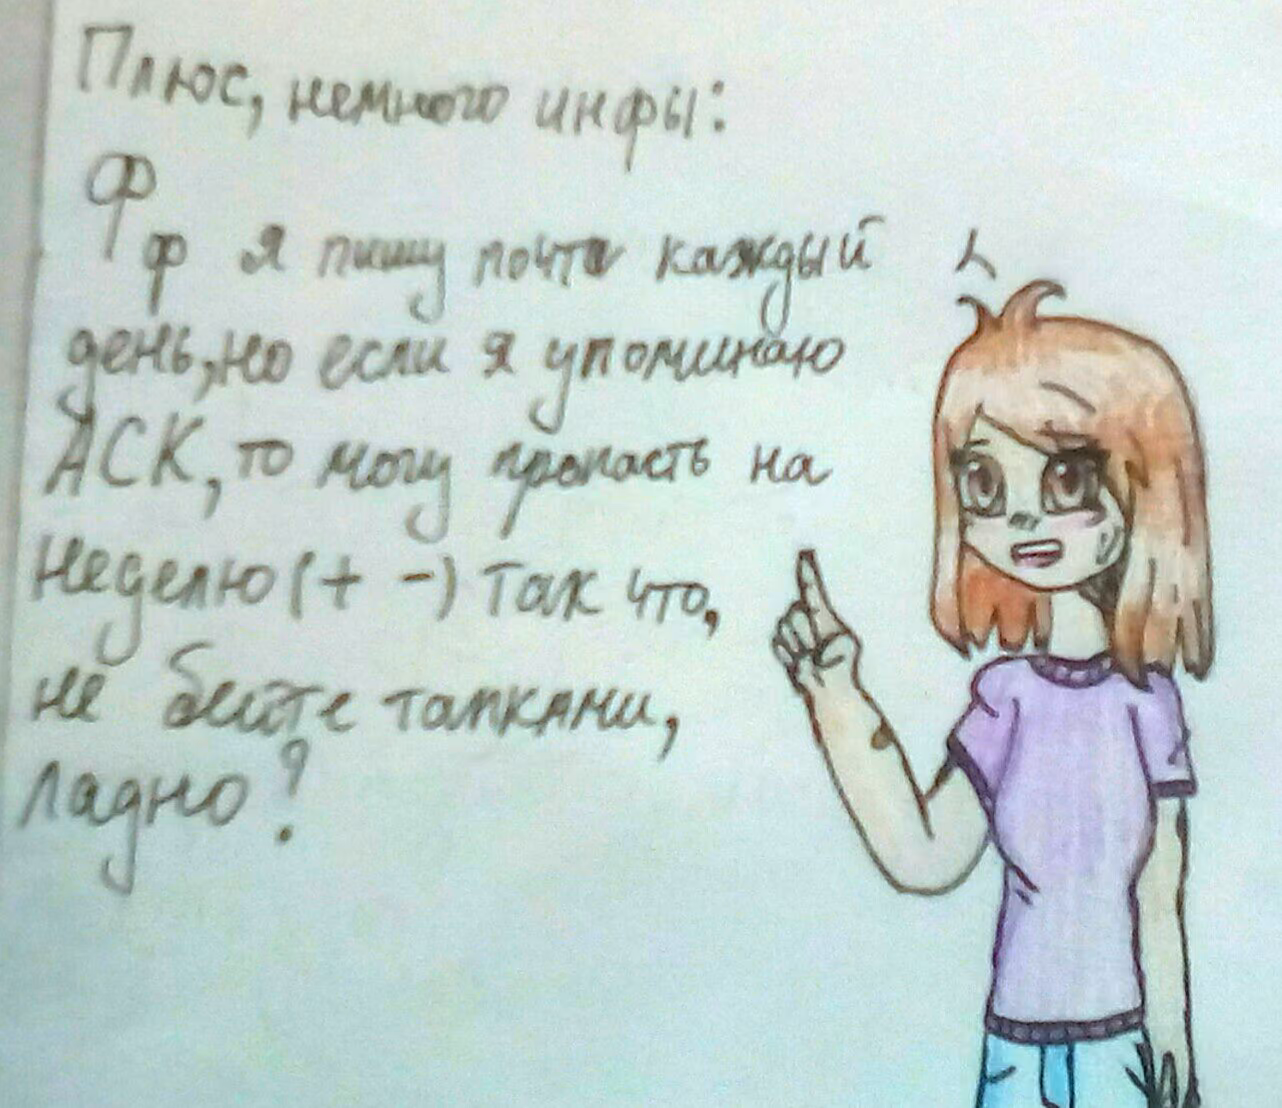 Плюс, немного инфы:
Ф
ф я пишу почти каждый
день, но если я упоминаю
АСК, то могу пропасть на
неделю (+ -) Так что,
не бейте тапками,
ладно?